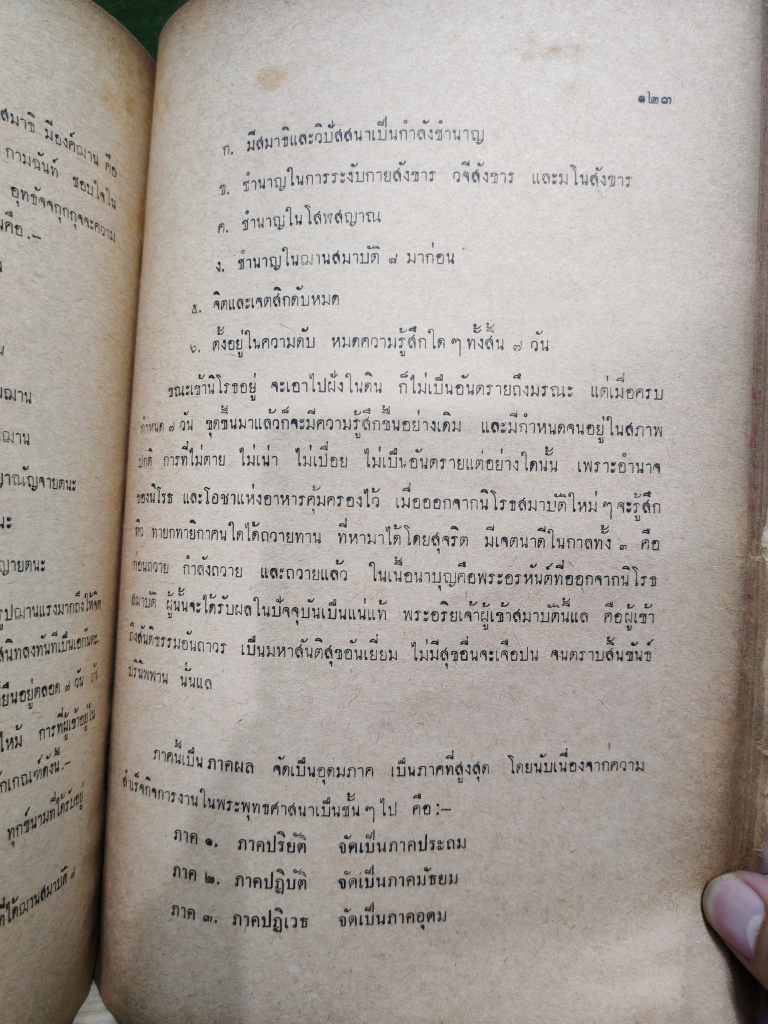 สมาธิ มีองค์ฌาน คือ
กามฉันท์ ชอบใจใน
อุทธัจจกุกกุจจะความ
คือ.–
ฌาน
ฌาน
ญาณัญจายตนะ
นะ
ญายตนะ
รูปฌานแรงมากถึงให้จิต
สนิทลงทันทีเป็นเอกัน
ยืนอยู่ตลอด ๗ วัน
ไหม้ การที่ผู้เข้าอยู่ใน
เกณฑ์ดังนี้.–
ทุกข์นามที่ได้รับอยู่
ที่ได้ฌานสมาบัติ ๘
๑๒๓
ก. มีสมาธิและวิปัสสนาเป็นกำลังชำนาญ
ข. ชำนาญในการระงับกายสังขาร วจีสังขาร และมโนสังขาร
ค. ชำนาญในโสฬสญาณ
ง. ชำนาญในฌานสมาบัติ ๘ มาก่อน
๕. จิตและเจตสิกดับหมด
๖. ตั้งอยู่ในความดับ หมดความรู้สึกใด ๆ ทั้งสิ้น ๗ วัน
ขณะเข้านิโรธอยู่ จะเอาไปฝังในดิน ก็ไม่เป็นอันตรายถึงมรณะ แต่เมื่อครบ
กำหนด ๗ วัน ขุดขึ้นมาแล้วก็จะมีความรู้สึกขึ้นอย่างเดิม และมีกำหนดจนอยู่ในสภาพ
ปกติ การที่ไม่ตาย ไม่เน่า ไม่เปื่อย ไม่เป็นอันตรายแต่อย่างใดนั้น เพราะอำนาจ
ของนิโรธ และโอชาแห่งอาหารคุ้มครองไว้ เมื่อออกจากนิโรธสมาบัติใหม่ ๆ จะรู้สึก
หิว ทายกทายิกาคนใดได้ถวายทาน ที่หามาได้โดยสุจริต มีเจตนาดีในกาลทั้ง ๓ คือ
ก่อนถวาย กำลังถวาย และถวายแล้ว ในเนื้อนาบุญคือพระอรหันต์ที่ออกจากนิโรธ
สมาบัติ ผู้นั้นจะได้รับผลในปัจจุบันเป็นแน่แท้ พระอริยเจ้าผู้เข้าสมาบัตินี้แล คือผู้เข้า
ถึงสันติธรรมอันถาวร เป็นมหาสันติสุขอันเยี่ยม ไม่มีสุขอื่นจะเจือปน จนตราบสิ้นขันธ์
ปรินิพพาน นั่นแล
ภาคนี้เป็นภาคผล จัดเป็นอุดมภาค เป็นภาคที่สูงสุด โดยนับเนื่องจากความ
สำเร็จกิจการงานในพระพุทธศาสนาเป็นชั้น ๆ ไป คือ:–
ภาค ๑. ภาคปริยัติ จัดเป็นภาคประถม
ภาค ๒. ภาคปฏิบัติ จัดเป็นภาคมัธยม
ภาค ๓. ภาคปฏิเวธ จัดเป็นภาคอุดม